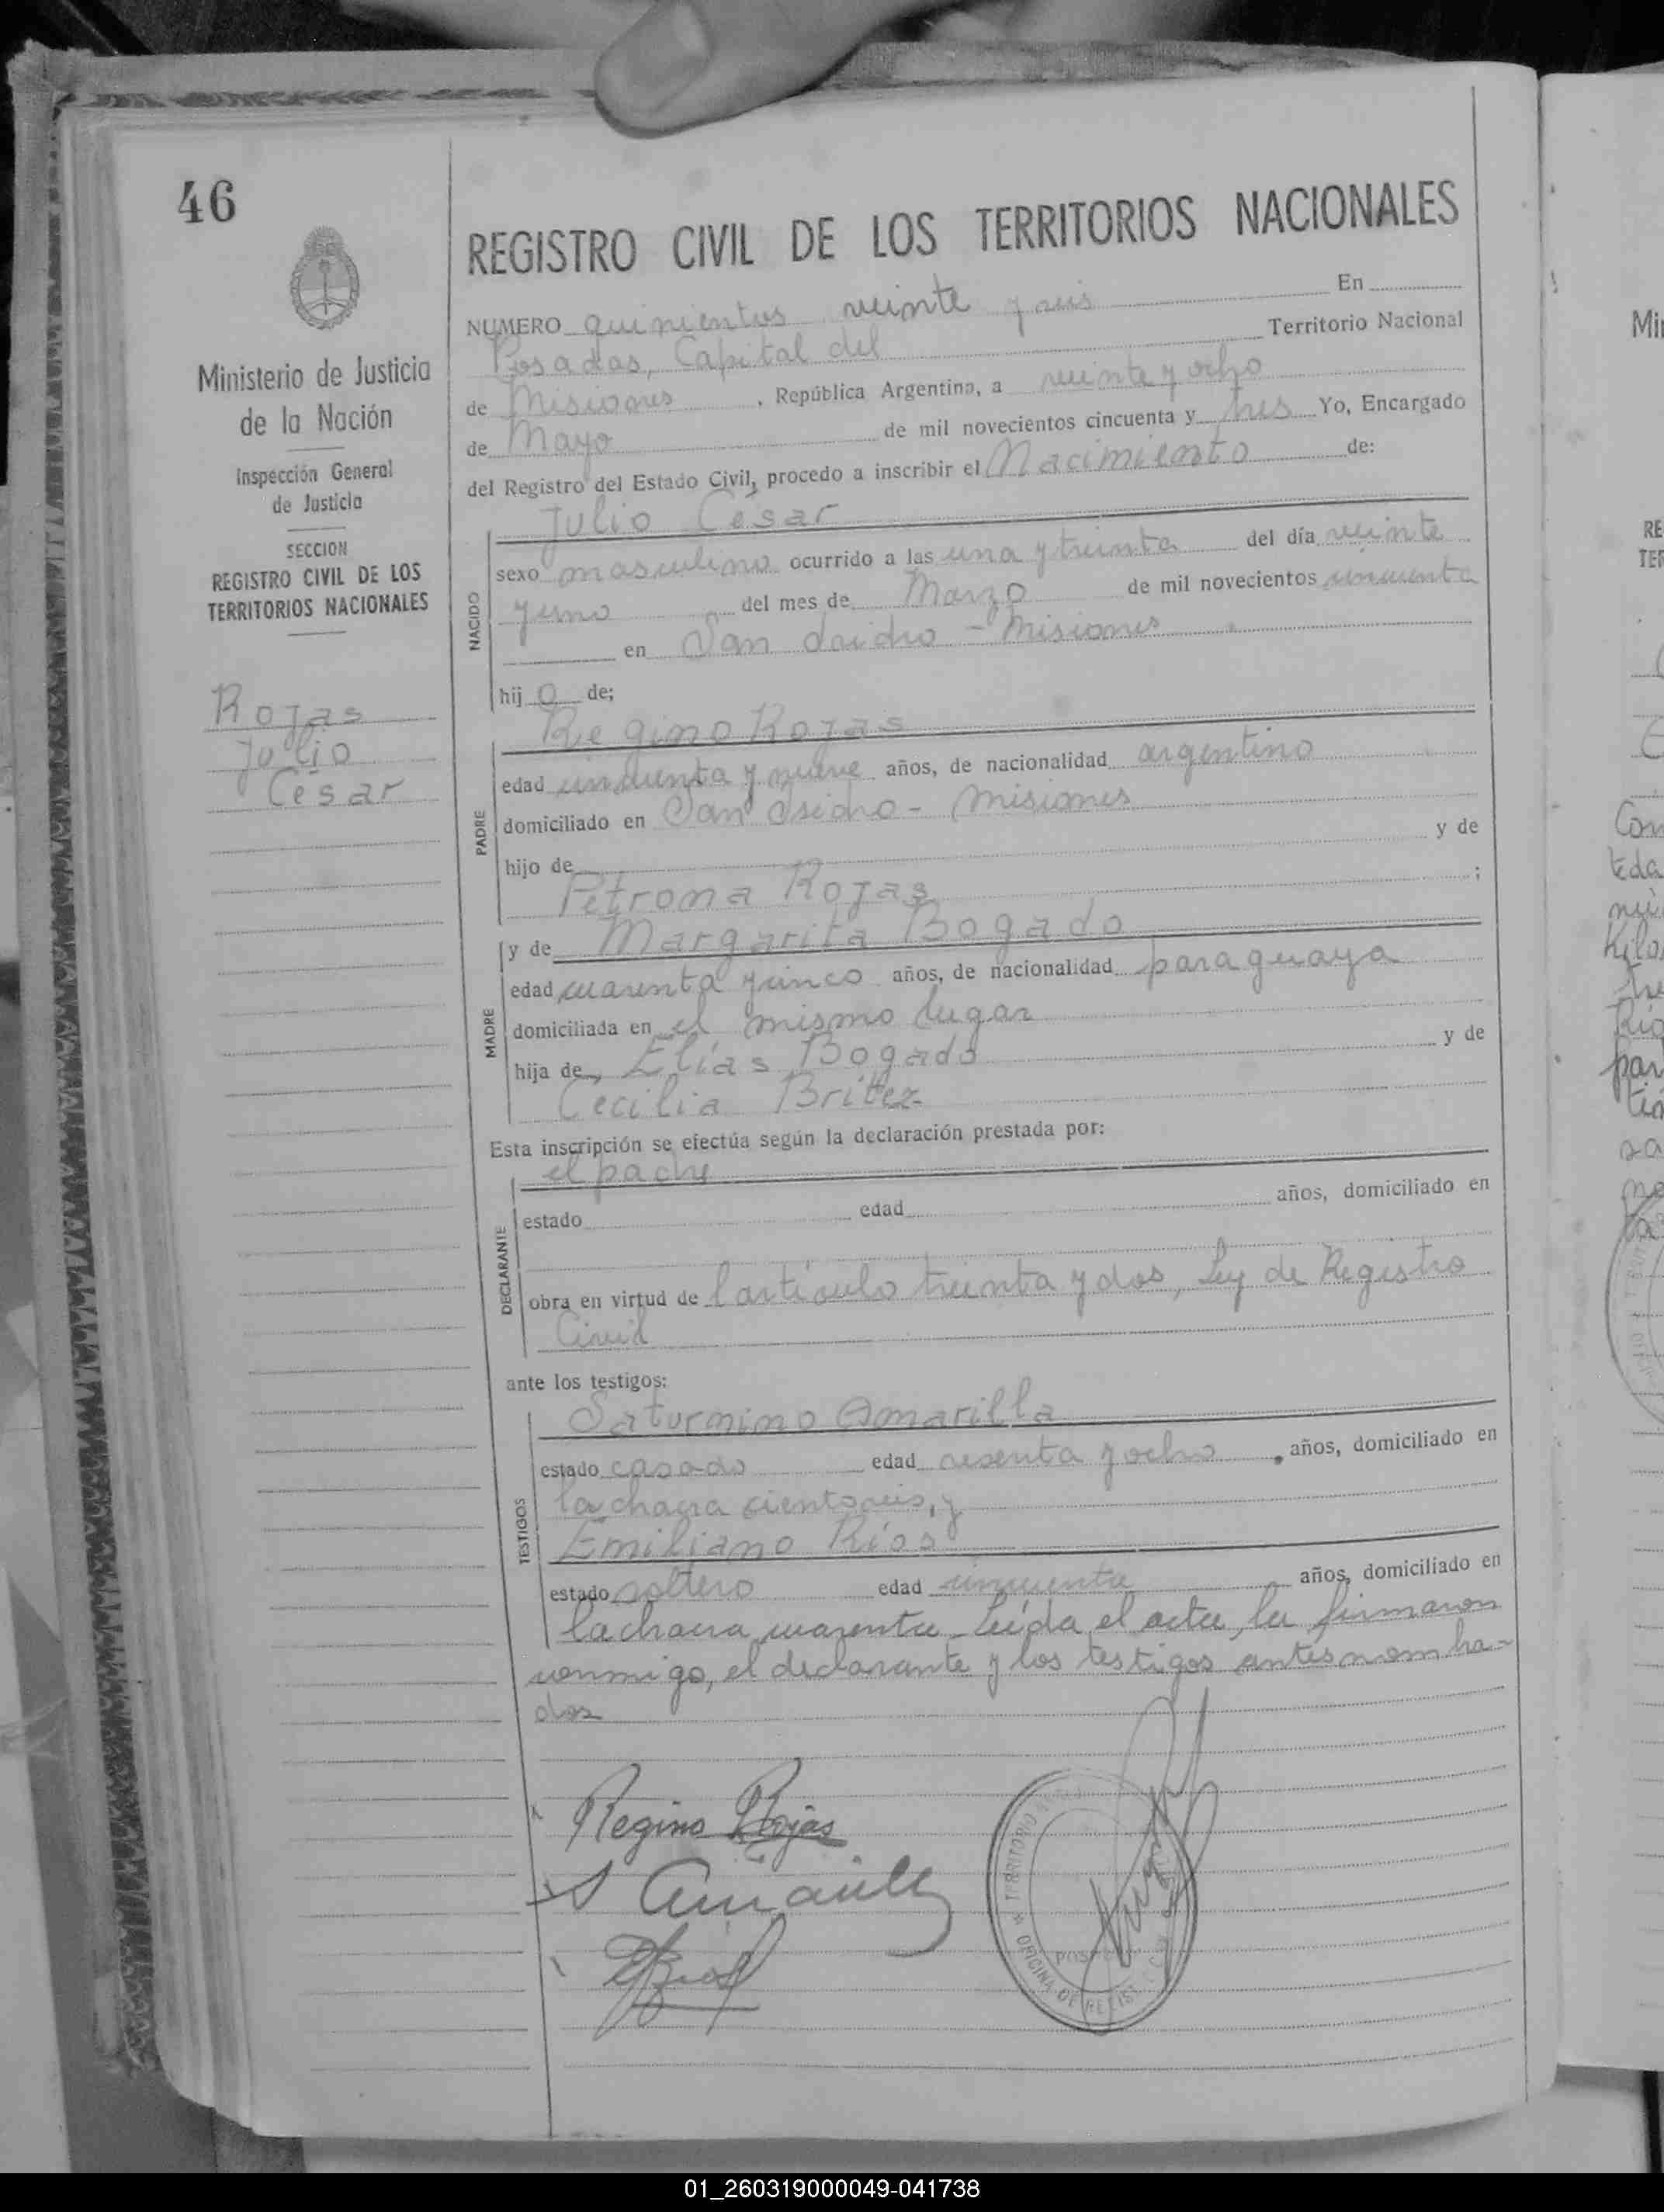 46
REGISTRO CIVIL DE LOS TERRITORIOS NACIONALES
Ministerio de Justicia
de la Nación
Inspección General
de Justicia
SECCION
REGISTRO CIVIL DE LOS
TERRITORIOS NACIONALES
Rojas
Julio
César
NUMERO quinientos veinte y seis En
Posadas, Capital del Territorio Nacional
de Misiones, República Argentina, a veinte y ocho
de Mayo de mil novecientos cincuenta y tres Yo, Encargado
del Registro del Estado Civil, procedo a inscribir el Nacimiento de:
Julio César
NACIDO
sexo masculino ocurrido a las una y treinta del día veinte
y uno del mes de Marzo de mil novecientos cincuenta
en San Isidro - Misiones
hij o de;
Regino Rojas
PADRE
edad cincuenta y nueve años, de nacionalidad argentino
domiciliado en San Isidro - Misiones
hijo de y de
Petrona Rojas ;
MADRE
y de Margarita Bogado
edad cuarenta y cinco años, de nacionalidad paraguaya
domiciliada en el mismo lugar
hija de Elías Bogado y de
Cecilia Britez
Esta inscripción se efectúa según la declaración prestada por:
el padre
DECLARANTE
estado edad años, domiciliado en
obra en virtud de l artículo treinta y dos, Ley de Registro
Civil
ante los testigos:
TESTIGOS
Saturnino Amarilla
estado casado edad sesenta y ocho, años, domiciliado en
la chacra cientoseis, y
Emiliano Ríos
estado soltero edad cincuenta años, domiciliado en
la chacra cuarenta - Leída el acta, la firmaron
conmigo, el declarante y los testigos antes nombra-
dos
Regino Rojas
S Amarilla
TERRITORIO
OFICINA DE REGIST
Min
RE
TER
01_260319000049-041738